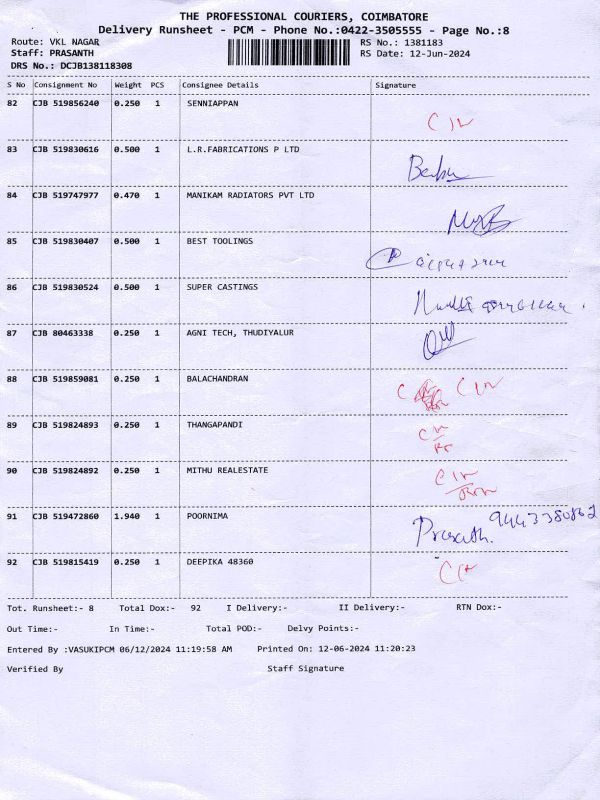 THE PROFESSIONAL COURIERS, COIMBATORE
Delivery Runsheet - PCM - Phone No.:0422-3505555 - Page No.:8
Route: VKL NAGAR RS No.: 1381183
Staff: PRASANTH RS Date: 12-Jun-2024
DRS No.: DCJB138118308
S No Consignment No Weight PCS Consignee Details Signature
82 CJB 519856240 0.250 1 SENNIAPPAN
83 CJB 519830616 0.500 1 L.R.FABRICATIONS P LTD
84 CJB 519747977 0.470 1 MANIKAM RADIATORS PVT LTD
85 CJB 519830407 0.500 1 BEST TOOLINGS
86 CJB 519830524 0.500 1 SUPER CASTINGS
87 CJB 80463338 0.250 1 AGNI TECH, THUDIYALUR
88 CJB 519859081 0.250 1 BALACHANDRAN
89 CJB 519824893 0.250 1 THANGAPANDI
90 CJB 519824892 0.250 1 MITHU REALESTATE
91 CJB 519472860 1.940 1 POORNIMA Prasath.
92 CJB 519815419 0.250 1 DEEPIKA 48360
Tot. Runsheet:- 8 Total Dox:- 92 I Delivery:- II Delivery:- RTN Dox:-
Out Time:- In Time:- Total POD:- Delvy Points:-
Entered By :VASUKIPCM 06/12/2024 11:19:58 AM Printed On: 12-06-2024 11:20:23
Verified By Staff Signature